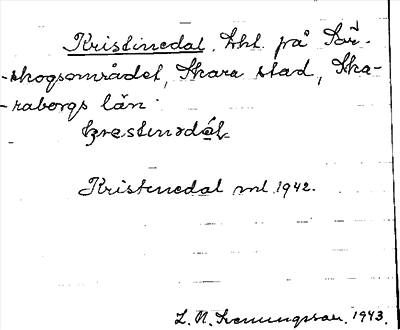 Kristinedal. Lht på
-skogsområdet, Skara stad, Ska-
-raborgs län.
Kristinedal ml. 1942.
L. N. Henningsson. 1943.